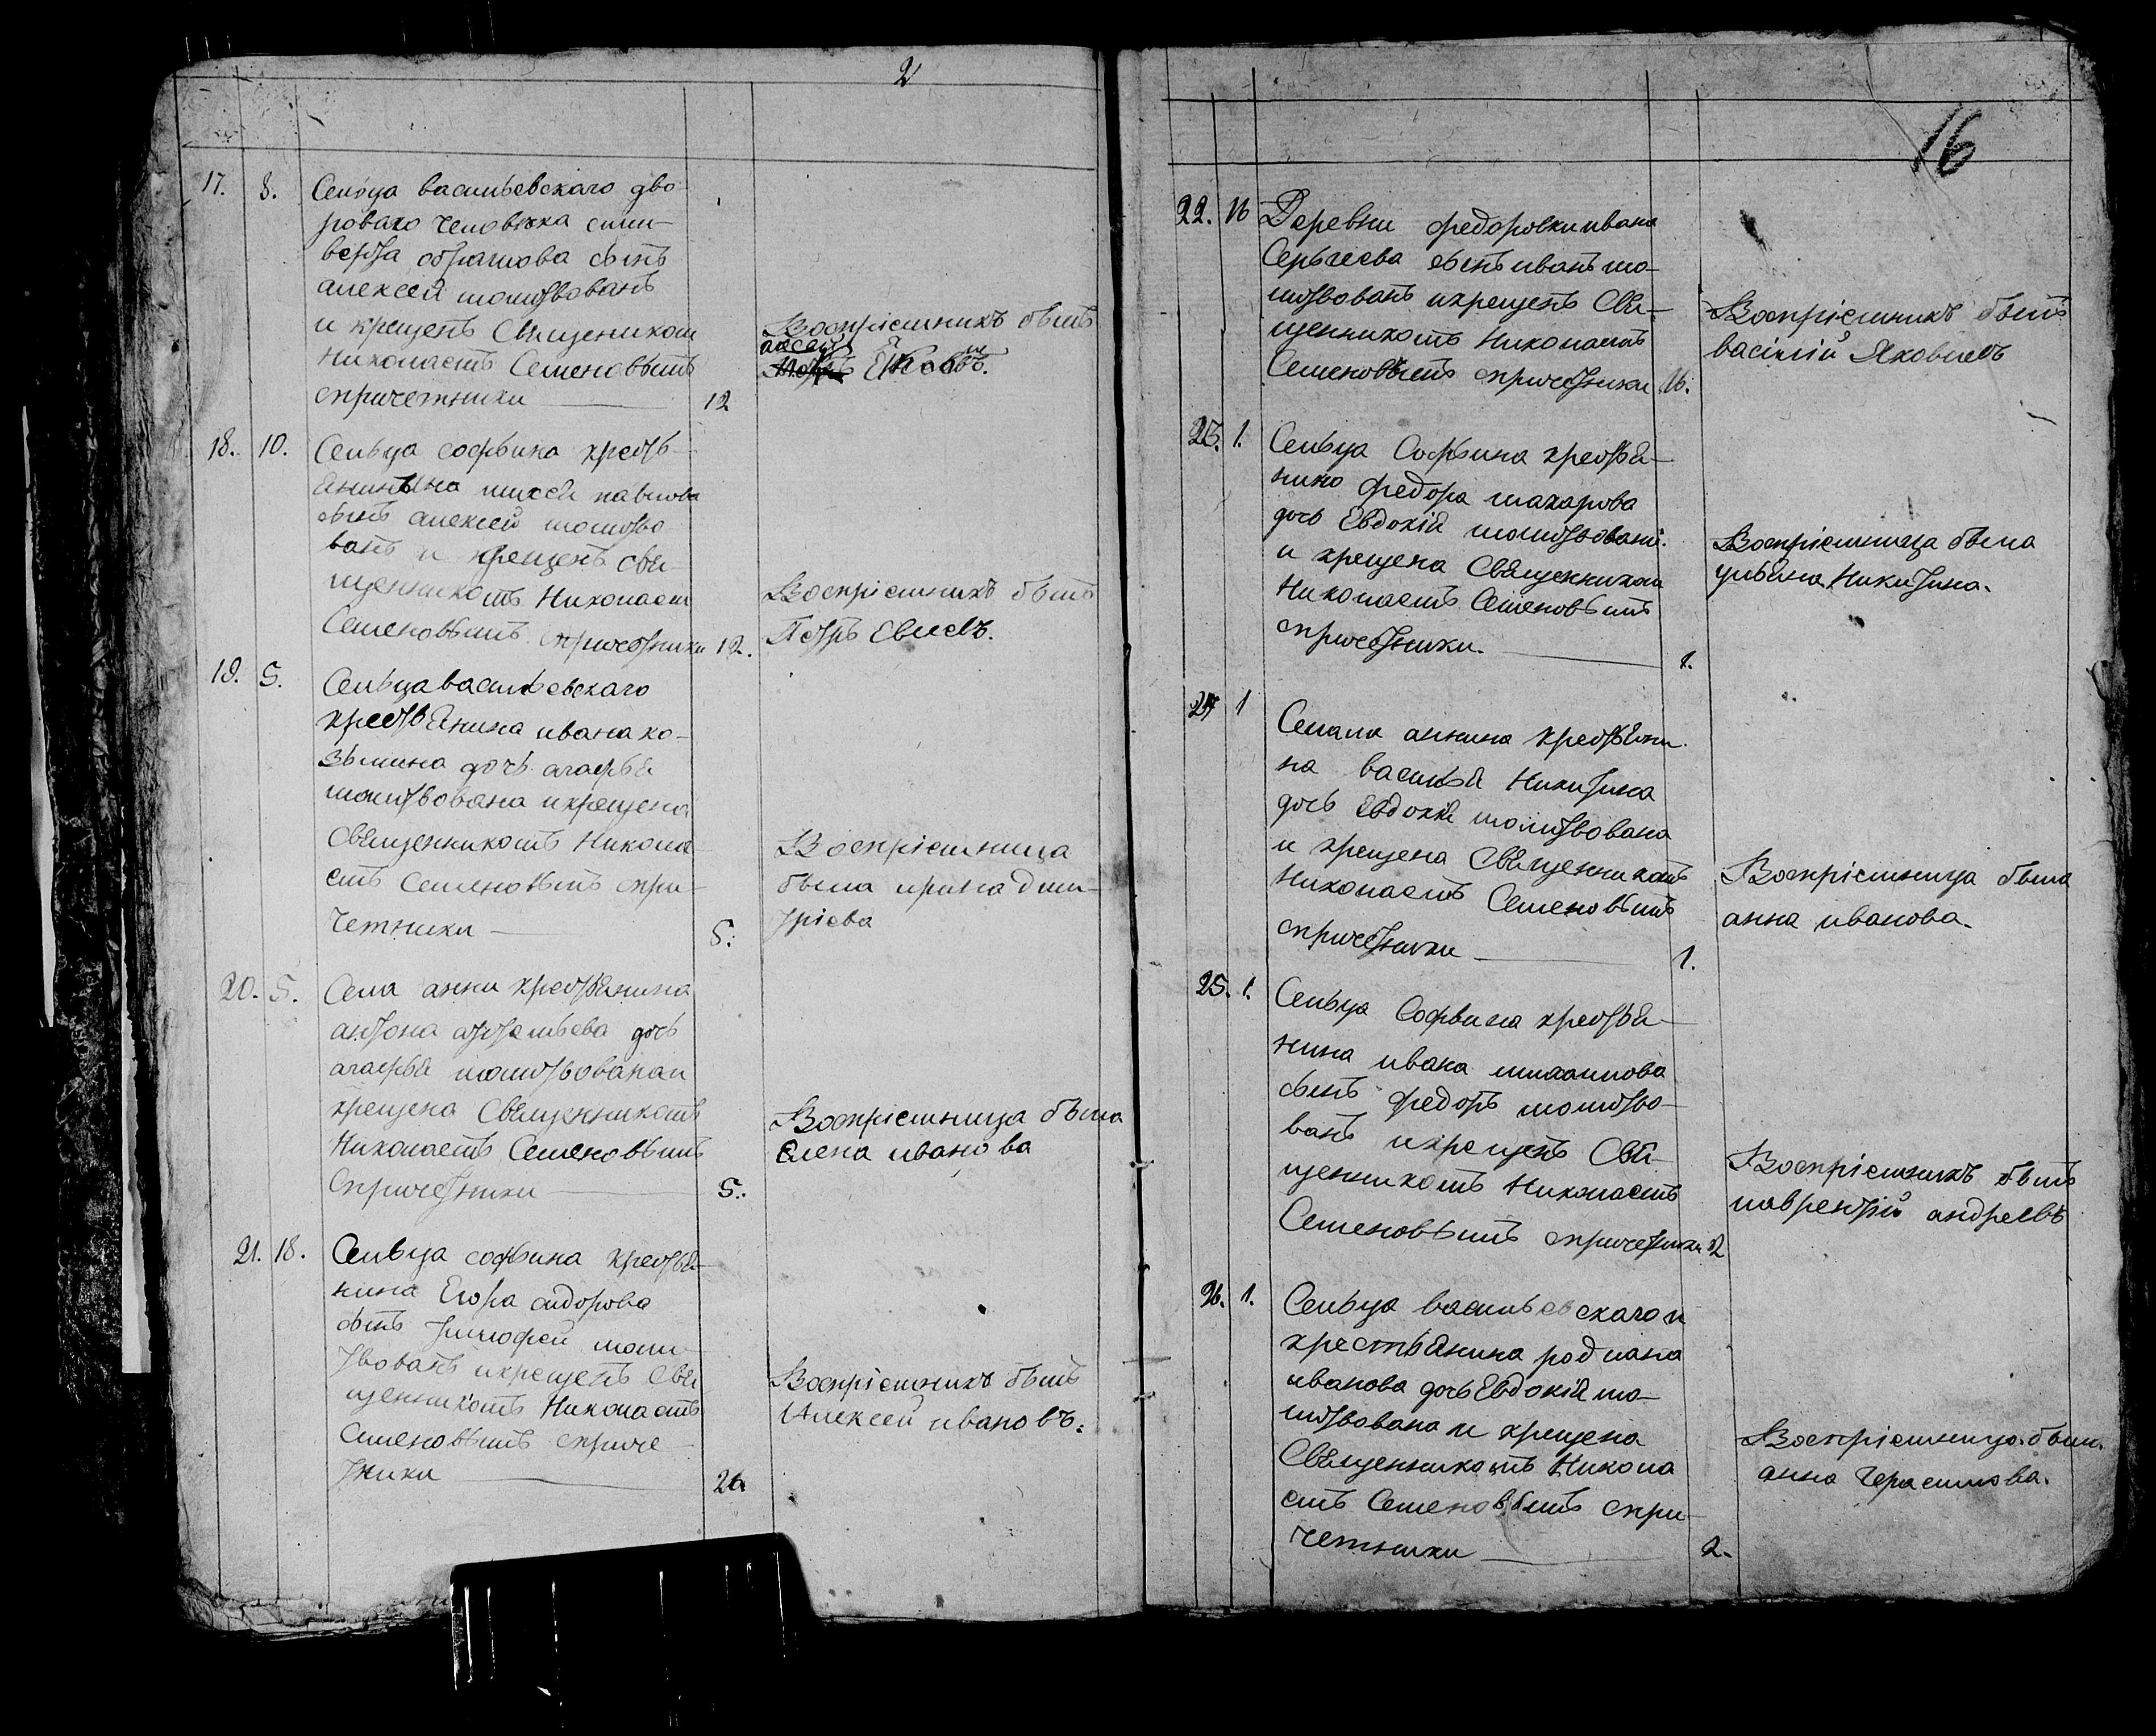 2
17. 8. Сельца васильевскаго дво-
роваго человѣка сили-
верста абрамова сынъ
алексей молитвованъ
и крещенъ Священиком
Николаемъ Семеновымъ
спричетники 12
Воспріемникъ былъ
алексей
18. 10. Сельца софьина кресть-
янинына михея павлова
сынъ алексей молитво
ванъ и крещенъ свя-
щенникомъ Николаем
Семеновымъ спричетники 12.
Воспріемникъ былъ
Петръ Евлевъ.
19. 5. Сельца васильевскаго
крестьянина ивана ко-
зьмина дочь агафья
молитвована икрещена
Священникомъ Никола-
емъ Семеновымъ спри-
четники 5.
Воспріемница
была ирина дми-
тріева
20. 5. Села анни крестьянина
антона артемьева дочь
агафья молитвованаи
крещена Священникомъ
Николаемъ Семеновымъ
спричетники 5.
Воспріемница была
Елена иванова
21. 18. Сельца софьина крестья-
нина Егора сидорова
сынъ тимофей моли-
твованъ икрещенъ Свя
щенникомъ Николаемъ
Семеновымъ сприче
тники 20
Воспріемникъ былъ
Алексей ивановъ.
16
22. 16 Деревни федоровки ивана
Сергеева сынъ иванъ мо-
литвованъ икрещенъ Свя-
щенникомъ Николаемъ
Семеновымъ спричетники 16.
Воспріемникъ былъ
василий Яковлевъ
23. 1. Сельца Софьина крестья-
нина федора макарова
дочь Евдокія молитвована
и крещена Священником
Николаемъ Семеновымъ
спричетники. 1.
Воспріемница была
ульяна Никитина.
24 1 Селала аннина крестьяни-
на василья Никитина
дочь Евдокія молитвована
и крещена Священникомъ
Николаемъ Семеновымъ
спричетники 1.
Воспріемница была
анна иванова.
25. 1. Сельца Софьина крестья-
нина ивана михаилова
сынъ федоръ молитво-
ванъ икрещенъ Свя-
щенникомъ Николаемъ
Семеновымъ спричетники 2
Воспріемникъ былъ
лаврентій андреевъ
26. 1. Сельца васильевскаго
крестьянина родиана
иванова дочь Евдокія мо-
литвована и крещена
Священникомъ Никола
емъ Семеновымъ спри-
четники 2.
Воспріемница был.
анна Герасимова.